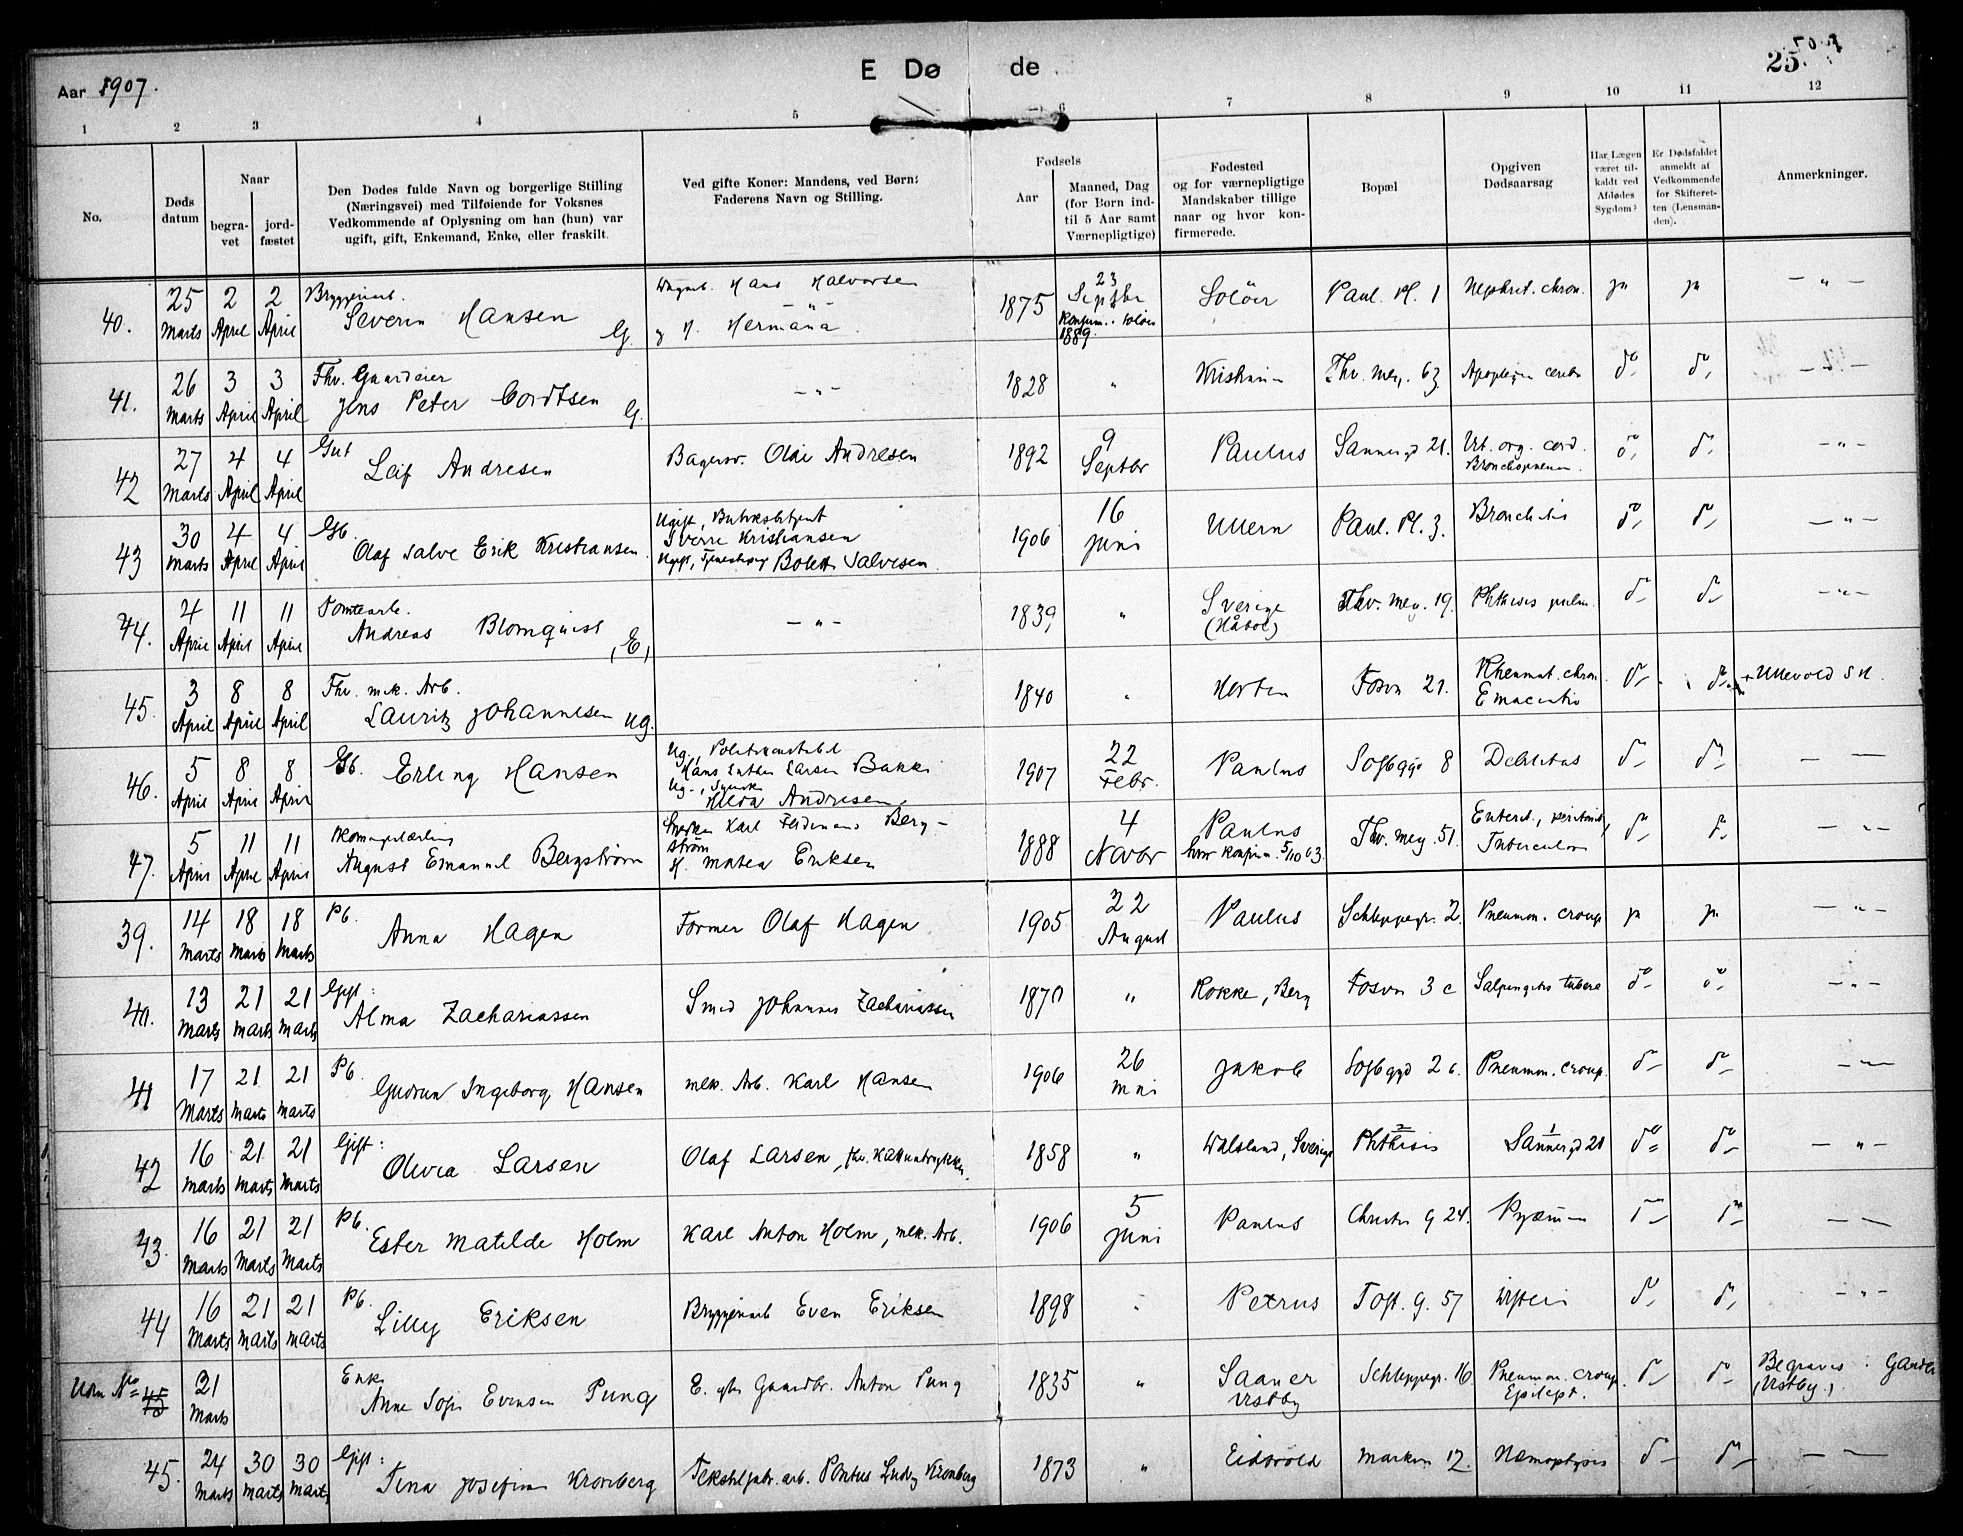 Aar 1907.
E Døde
25.
1 2 3 4 5 6 7 8 9 10 11 12
No.
Døds datum
Naar
begra-vet
jord-fæstet
Den Dødes fulde Navn og borgerlige Stilling
(Næringsvei) med Tilføiende for Voksnes
Vedkommende af Oplysning om han (hun) var
ugift, gift, Enkemand, Enke, eller fraskilt.
Ved gifte Koner: Mandens, ved Børn:
Faderens Navn og Stilling.
Fødsels
Aar
Maaned, Dag
(for Børn ind-
til 5 Aar samt
Værnepligtige)
Fødested
og for værnepligtige
Mandskaber tillige
naar og hvor kon-
firmerede.
Bopæl
Opgiven
Dødsaarsag
Har Lægen
været til-
kaldt ved
Afdødes
Sygdom?
Er Dødsfaldet
anmeldt af
Vedkommende
for Skifteret-
ten (Lensman-
den).
Anmerkninger.
40. 25 Marts 2 April 2 April Bryggeriarb. Severin Hansen G. Hans Halvorsen og H. Hermana 1875 23 Septbr Konfirm. Soløer 1889. Soløer Paul. Pl. 1 Nephrit. chron. ja ja — " —
41. 26 Marts 3 April 3 April Fhv. Gaardeier Jens Peter Cordtsen G. — " — 1828 " Kristiania Thv. mey. 63 Apoplexia cerebr do do — " —
42 27 Marts 4 April 4 April Gut Leif Andresen Bagersv. Olai Andresen 1892 9 Septbr Paulus Sannergd 21. Vit. org. cord. Bronchopneum. do do — " —
43 30 Marts 4 April 4 April Gb. Olaf Salve Erik Kristiansen. Ugift, Butiksbetjent Sverre Kristiansen Ugift, Tjenestepige Bolette Salvesen 1906 16 Juni Ullern Paul. Pl. 3. Bronchitis do do — " —
44. 4 April 11 April 11 April Tomtearb. Andreas Blomquist, E, — " — 1839, " Sverige (Håbol) Thv. mey. 19. Phthisis pulm. do do — " —
45. 3 April 8 April 8 April Fhv. mek. Arb. Lauritz Johannesen ug. 1840 " Horten Fosvn 21. Rheumat. chron Emaciatio do do Ullevold S H.
46. 5 April 8 April 8 April Gb. Erling Hansen Ug., Politikonstabel Hans Larsen Bakke Ug., Hilda Andresen 1907 22 Febr. Paulus Sofbggd 8 Debilitas do do — —
47. 5 April 11 April 11 April August Emanuel Bergström Snedker Karl Ferdinand Berg-ström H. Matea Eriksen 1888 4 Novbr Paulus hvor Konfirm. 5/10 03. Thv. mey. 51. Enterit., peritonit, Tuberculosa do do — " —
39. 14 Marts 18 Marts 18 Marts Pb. Anna Hagen Former Olaf Hagen 1905 22 August Paulus Schleppegr. 2. Pneumon. croup ja ja — " —
40. 13 Marts 21 Marts 21 Marts Gift: Alma Zachariassen Smed Johannes Zachariassen 1870 " Rokke, Berg Fosvn 3 c Salpingitis tuberc do do — " —
41 17 Marts 21 Marts 21 Marts Pb. Gudrun Ingeborg Hansen mek. Arb. Karl Hansen 1906 26 Mai Jakob Sofbggd 2 c. Pneumon. croup. do do — " —
42 16 Marts 21 Marts 21 Marts Gift: Olivia Larsen Olaf Larsen, fhv. Kattuntrykker. 1858 " Dalsland, Sverige 2 Phthisis 1 Sannergd 21 do do — " —
43. 16 Marts 21 Marts 21 Marts Pb. Ester Matilde Holm Karl Anton Holm, mek. Arb. 1906 5 Juni Paulus Christies G 24. Pyæmi do do — " —
44 16 Marts 21 Marts 21 Marts Pb. Lilly Eriksen Bryggeriarb Even Eriksen 1898 " Petrus Toft. G. 57 do do — " —
Uden No 45 21 Marts Enke Anne Sofie Evensen Pung E. efter Gaardbr. Anton Pung 1835 " Saaner Vestby Schleppegr. 16 Pneumon. croup. Epilept. do do Begraves i Garder (Vestby.)
45. 24 Marts 30 Marts 30 Marts Gift: Tina Josefine Kronberg Pontus Ludv Kronberg 1873 " Eidsvold Markvn 12. Hæmoptysis do do — " —